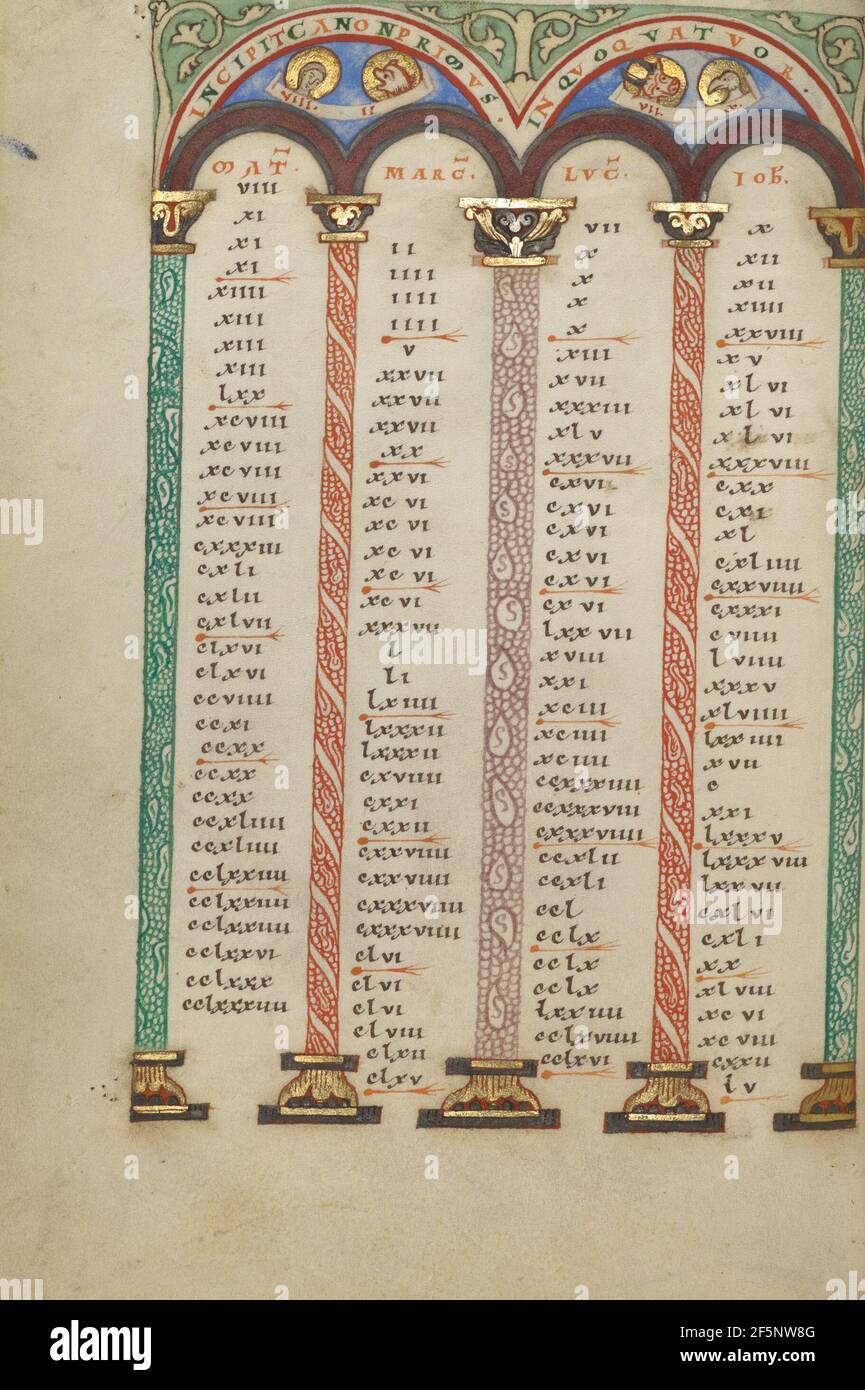 INCIPITCANONPRIMVS.
INQVOQVATVOR.
VIII.
II
VII.
MAT.
viii
xi
xi
xi
xiiii
xiii
xiii
xiii
lxx
xcviii
xcviii
xcviii
xcviii
xcviii
cxxxiii
cxli
cxlii
cxlvii
clxvi
clxvi
ccviiii
ccxi
ccxx
ccxx
ccxx
ccxliiii
ccxliiii
cclxxiiii
cclxxiiii
cclxxiiii
cclxxvi
cclxxx
cclxxxiiii
MARC.
ii
iiii
iiii
iiii
v
xxvii
xxvii
xxvii
xx
xxvi
xcvi
xcvi
xcvi
xcvi
xcvi
xxxvii
l
li
lxiiii
lxxxii
lxxxii
cxviiii
cxxi
cxxii
cxxviiii
cxxviiii
cxxxviiii
cxxxviiii
clvi
clvi
clvi
clviii
clxii
clxv
LVC.
vii
x
x
x
x
xiii
xvii
xxxiii
xlv
xxxvii
cxvi
cxvi
cxvi
cxvi
cxvi
cxvi
lxxvii
xviii
xxi
xciii
xciiii
xciiii
ccxxxiiii
ccxxxviii
cxxxviiii
ccxlii
ccxli
ccl
cclx
cclx
cclx
lxxiiii
cclxviiii
cclxvi
IOh.
x
xii
xii
xiiii
xxviii
xv
xlvi
xlvi
xlvi
xxxviii
cxx
cxi
xl
cxliiii
cxxviiii
cxxxi
cviiii
lviiii
xxxv
xlviiii
lxxiiii
xvii
c
xxi
lxxxv
lxxxviii
lxxvii
cxlvi
cxli
xx
xlviii
xcvi
xcviii
cxxii
lv
alamy
Image ID: 2F5NW8G
www.alamy.com